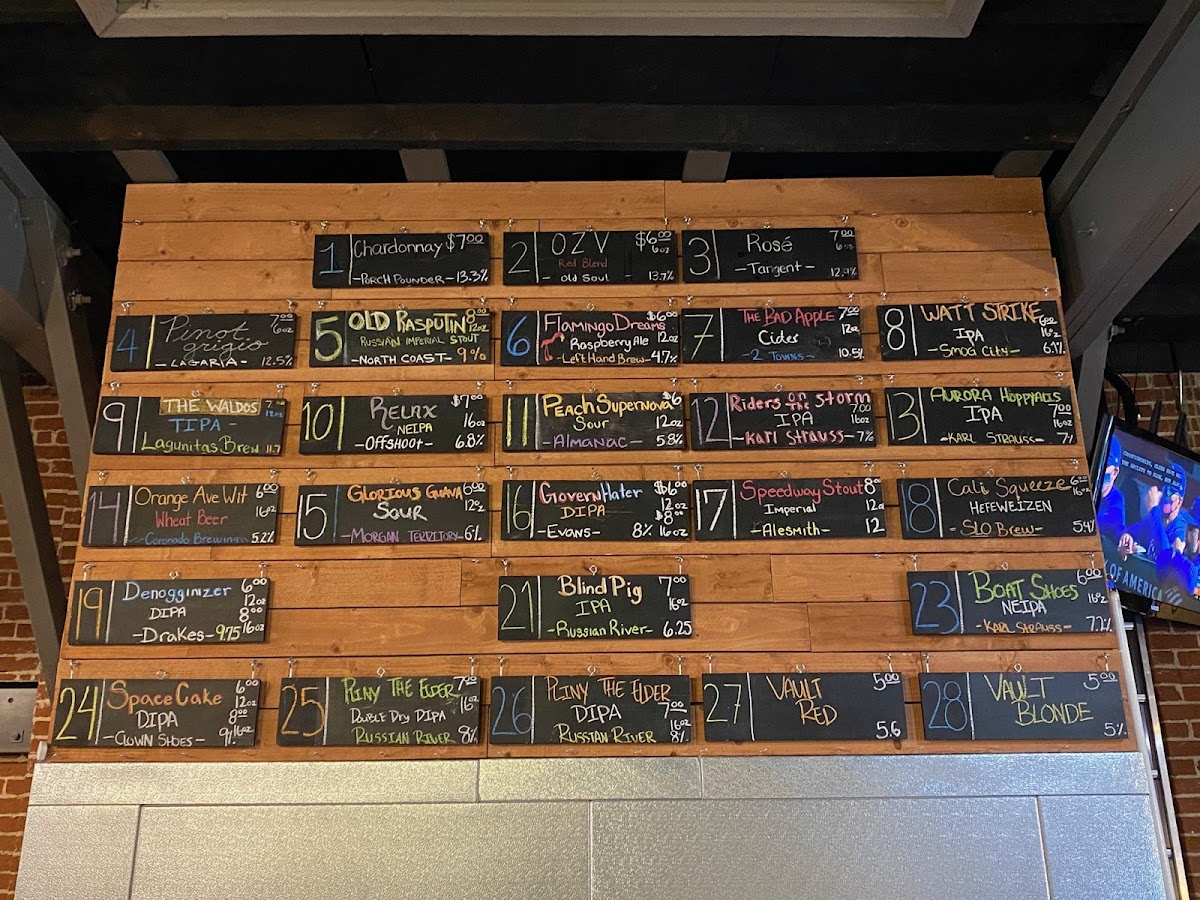 1 Chardonnay $7.00
-Porch Pounder- 13.3%
2 OZV $6.00
Red Blend 6oz
Old Soul 13.7%
3 Rosé 7.00
6oz
-Tangent- 12.9%
4 Pinot 7.00
grigio 6oz
-LAGARIA- 12.5%
5 OLD RASPUTIN 8.00
RUSSIAN IMPERIAL STOUT 12oz
-NORTH COAST- 9%
6 Flamingo Dreams $6.00
Raspberry Ale 12oz
-Left Hand Brew- 4.7%
7 THE BAD APPLE 7.00
Cider 12oz
-2 Towns- 10.5%
8 WATT STRIKE 6.00
IPA 16oz
-Smog City- 6.9%
9 THE WALDOS 7.00
TIPA - 12oz
Lagunitas Brew 11.7
10 RELAX $7.00
NEIPA 16oz
-OFFSHOOT- 6.8%
11 Peach Supernova $6
Sour 12oz
-ALMANAC- 5.8%
12 Riders on the Storm
IPA 7.00
16oz
-Karl Strauss- 7%
13 AURORA HOPPYALIS
IPA 7.00
16oz
-KARL STRAUSS- 7%
14 Orange Ave Wit 6.00
Wheat Beer 16oz
-Coronado Brewing 5.2%
15 GLORIOUS GUAVA 6.00
SOUR 12oz
-MORGAN TERRITORY- 6%
16 Govern Hater $6.00
DIPA 12oz
$8.00
-EVANS- 8% 16oz
17 Speedway Stout 8.00
Imperial 12oz
-Alesmith- 12
18 Cali Squeeze 6.00
HEFEWEIZEN 16oz
-SLO Brew- 5.4%
19 Denogginizer 6.00
DIPA 12oz
8.00
-Drakes- 9.75 16oz
21 Blind Pig 7.00
IPA 16oz
-Russian River- 6.25
23 BOAT SHOES 6.00
NEIPA 16oz
-KARL STRAUSS- 7.7%
24 Space Cake 6.00
DIPA 12oz
8.00
-CLOWN SHOES- 9% 16oz
25 PLINY THE ELDER 7.00
DOUBLE DRY DIPA 16oz
RUSSIAN RIVER 8%
26 PLINY THE ELDER
DIPA 7.00
16oz
RUSSIAN RIVER 8%
27 VAULT 5.00
RED
5.6
28 VAULT 5.00
BLONDE
5%
OF AMERICA